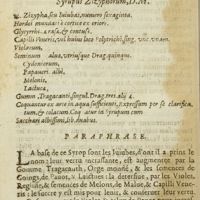 Syrupus Zizyphorum, D. M.
Zizypha, seu Iuiubas, numero sexaginta.
Hordei mundati à corticæ
Glycyrrhi. &
Capilli Veneris, vel huius loco Polytrichi, sing.
Violarum,
Seminum alua, utriusque Drag. quinque.
Cydoniorum,
Papaueris albi,
Melonis,
Lactucæ,
Gummi. Dragacanti, singul. Drag. tres.
Coquantur ex arte in aqua sufficienti, Expressum por se clarifica,
tum, & colatum Coq atur in Syrupum cum
Sacchari albissimi, lib. duabus.
PARAPHRASE.
A base de ce Syrop sont les Iuiubes, dont il a prins le
nom: leur vertu incrassante, est augmentée par la
Gomme Tragacanth, Orge mondé, & les semences de
Coings, de Pauot, & Laictues: la detersiue, par les Violes,
Reglisse, & semences de Melons, de Malue, & Capilli Vene-
ris: le sucre y est mis pour lenir, & conduire, & leur donner